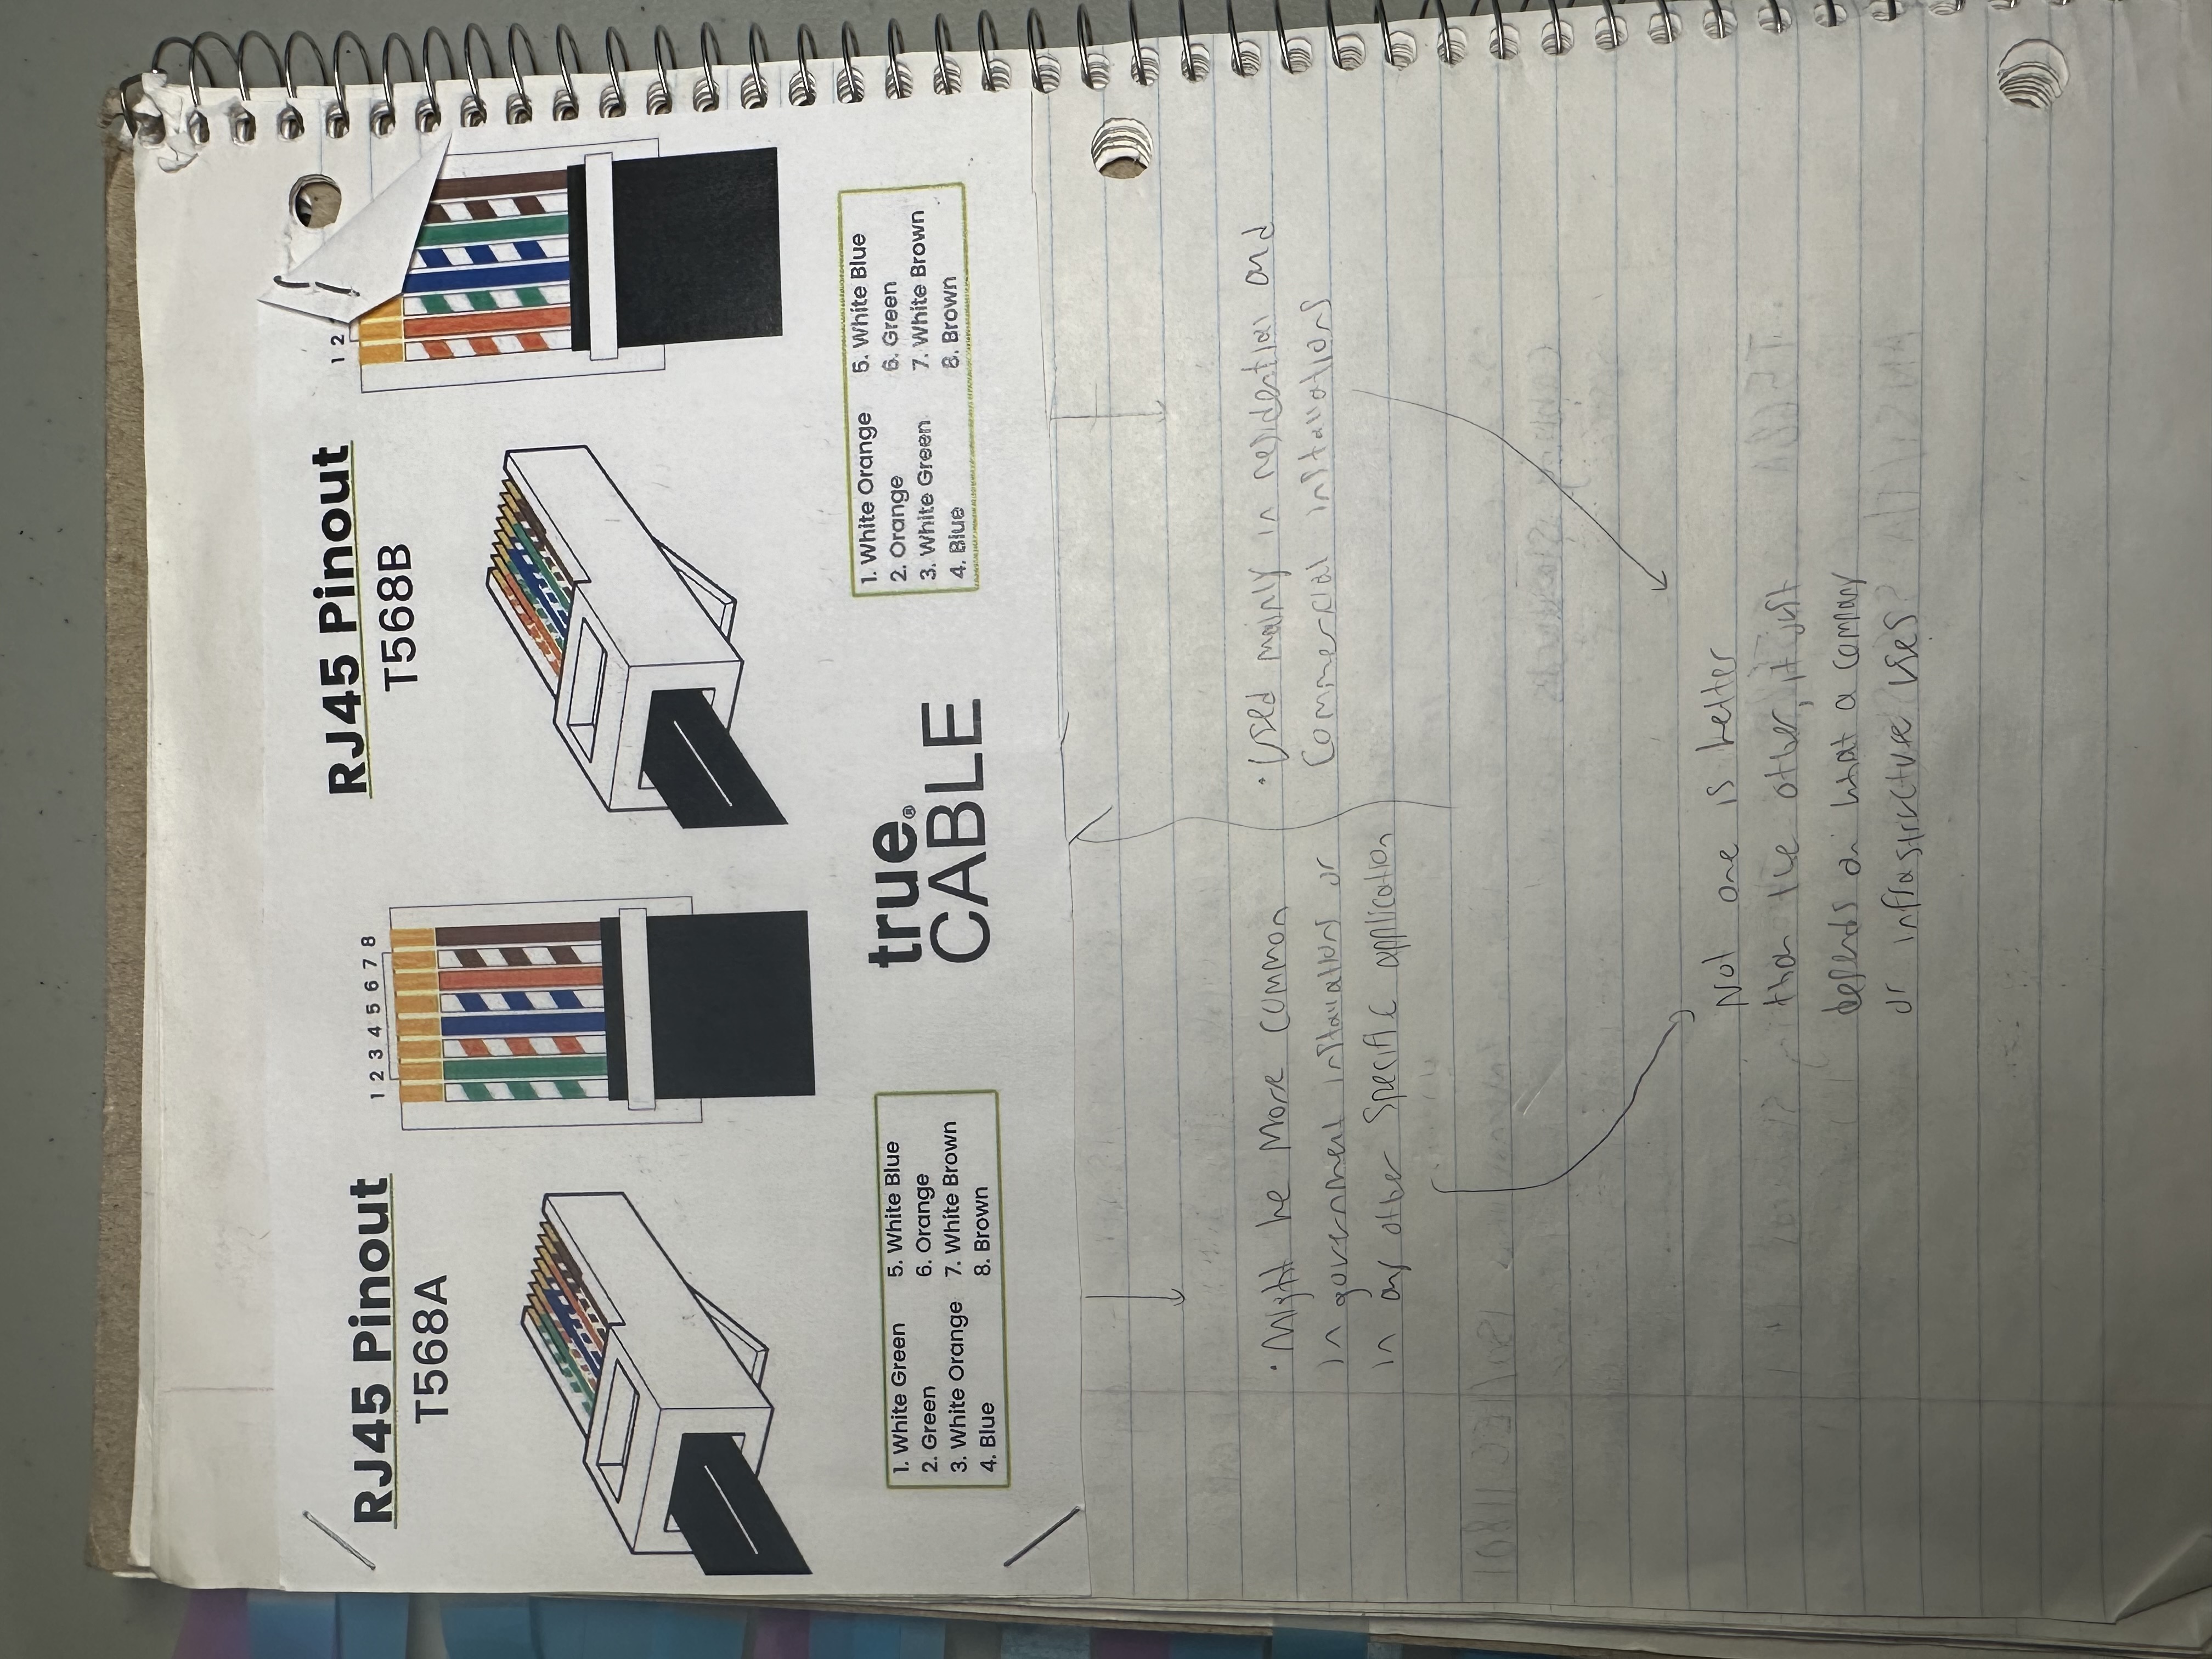 RJ45 Pinout
T568A
1 2 3 4 5 6 7 8
RJ45 Pinout
T568B
1 2
1. White Green
2. Green
3. White Orange
4. Blue
5. White Blue
6. Orange
7. White Brown
8. Brown
true®
CABLE
1. White Orange
2. Orange
3. White Green
4. Blue
5. White Blue
6. Green
7. White Brown
8. Brown
• Might be More common
in government installations or
in any other specific application
• Used mainly in residential and
Commercial installations
Not one is better
than the other, it just
depends on what a company
or infrastructure uses